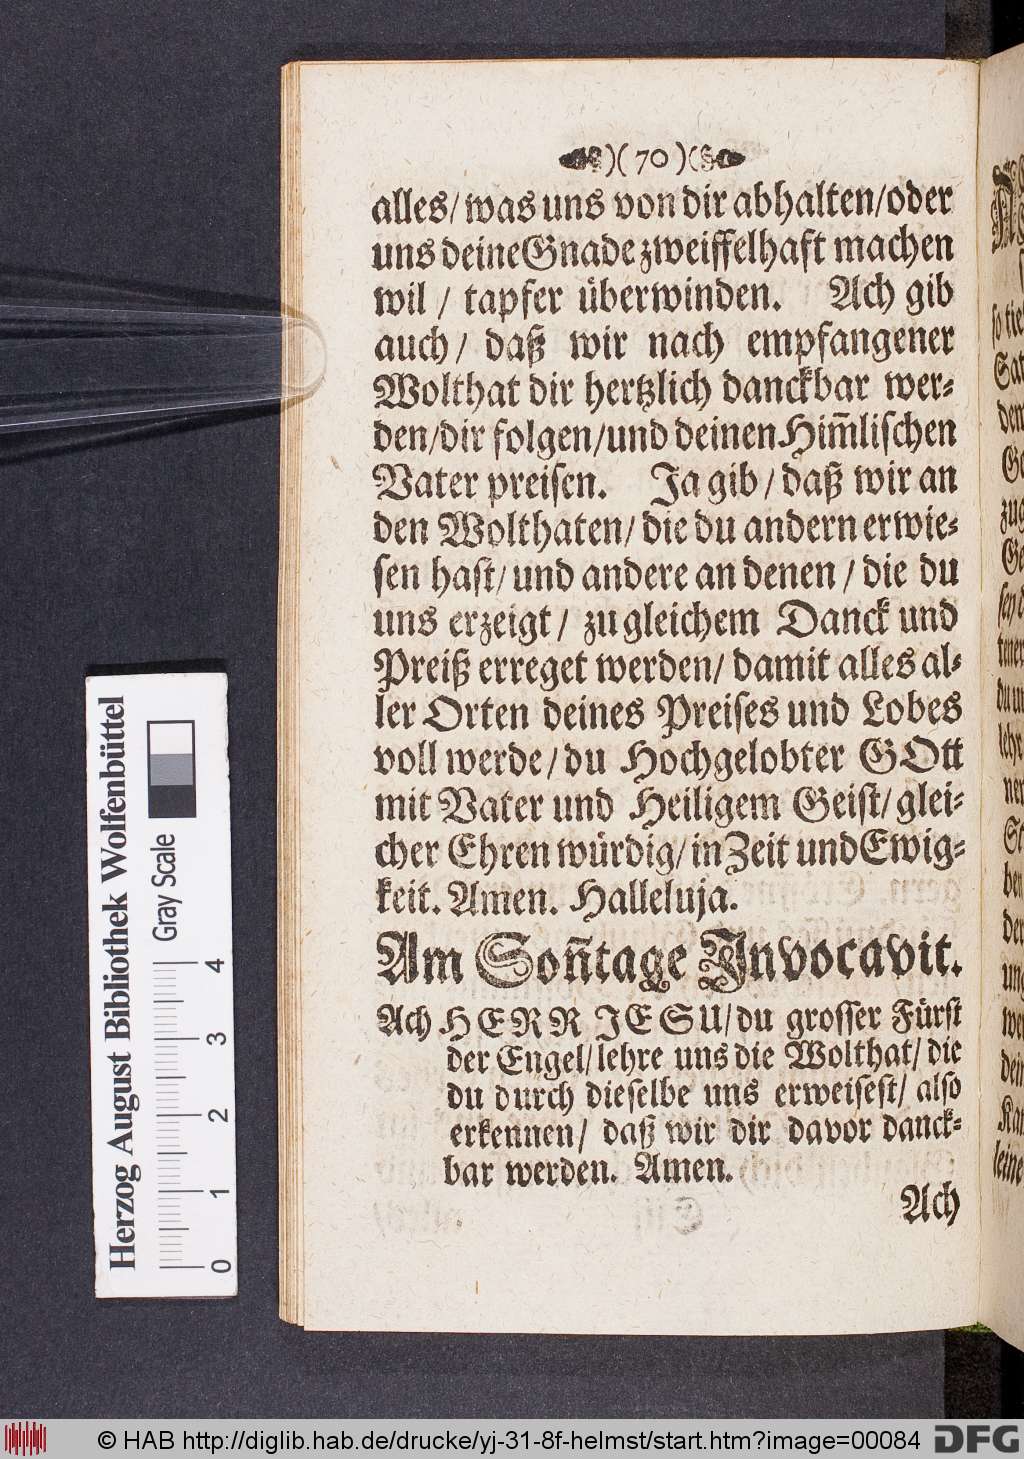 )( 70 )(
alles/ was uns von dir abhalten/oder
uns deine Gnade zweiffelhaft machen
wil / tapfer überwinden. Ach gib
auch/ daß wir nach empfangener
Wolthat dir hertzlich danckbar wer-
den/dir folgen/und deinen Him̃lischen
Vater preisen. Ja gib / daß wir an
den Wolthaten/ die du andern erwie-
sen hast/ und andere an denen / die du
uns erzeigt / zu gleichem Danck und
Preiß erreget werden/ damit alles al-
ler Orten deines Preises und Lobes
voll werde/ du Hochgelobter GOtt
mit Vater und Heiligem Geist/ glei-
cher Ehren würdig/ in Zeit und Ewig-
keit. Amen. Halleluja.
Am Soñtage Invocavit.
Ach HERR JESU/du grosser Fürst
der Engel/ lehre uns die Wolthat/ die
du durch dieselbe uns erweisest/ also
erkennen/ daß wir dir davor danck-
bar werden. Amen.
Ach
so tie
Sat
den
zug
du u
lehr
ner
ben
der
und
wer
dein
leine
Herzog August Bibliothek Wolfenbüttel
Gray Scale
0 1 2 3 4
© HAB http://diglib.hab.de/drucke/yj-31-8f-helmst/start.htm?image=00084
DFG